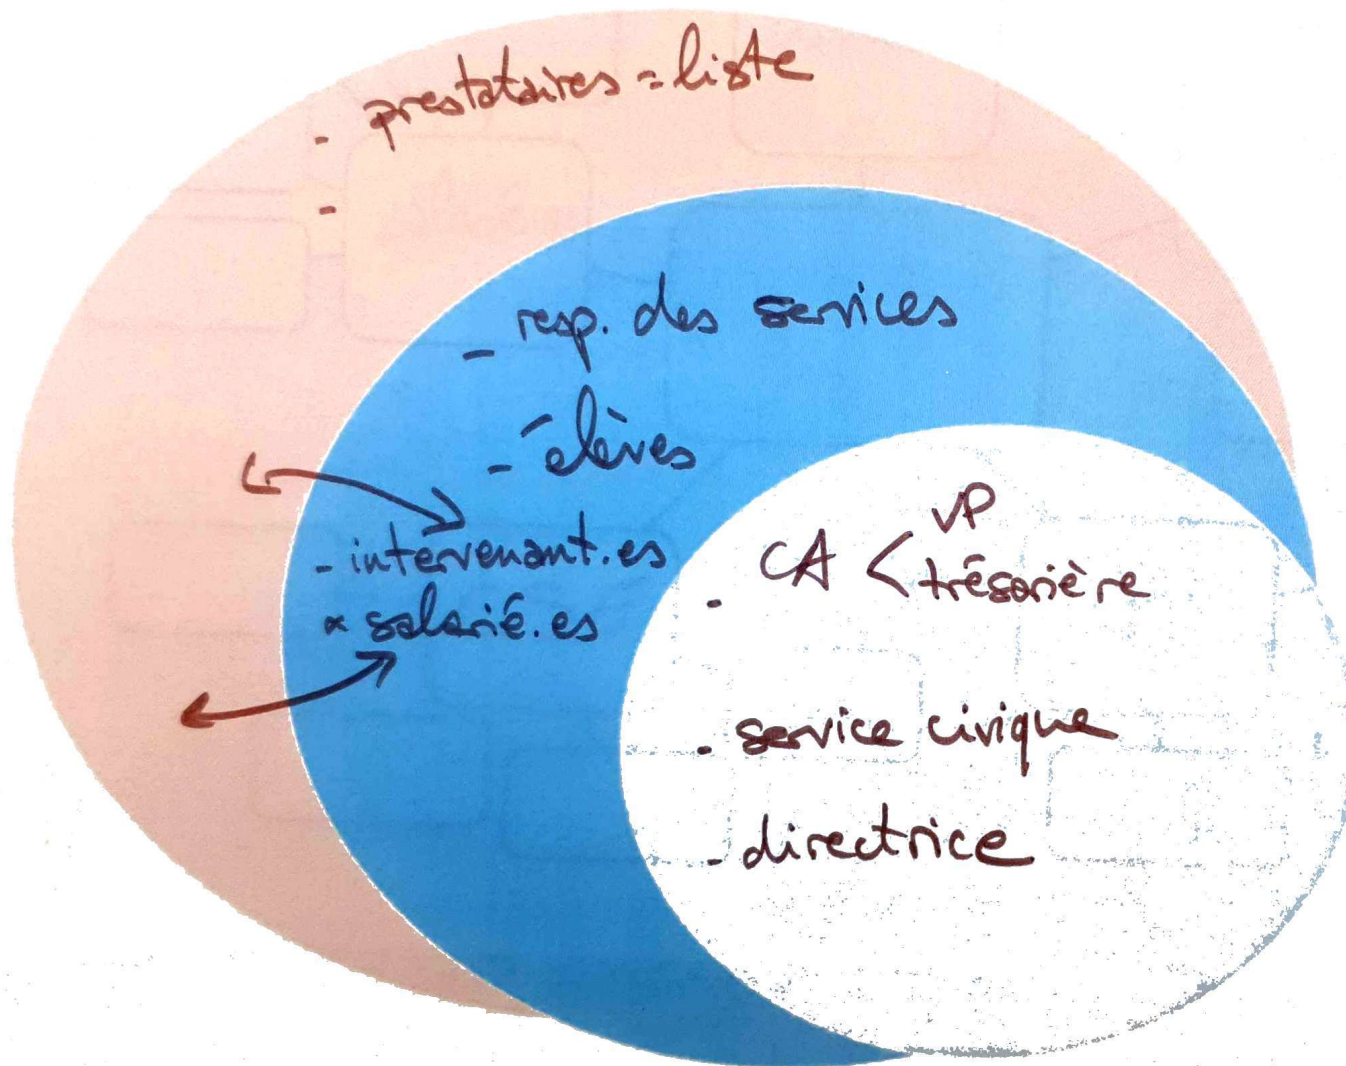 - prestataires = liste
-
- resp. des services
- élèves
- intervenant.es
× salarié.es
- CA < VP
trésorière
- service civique
- directrice